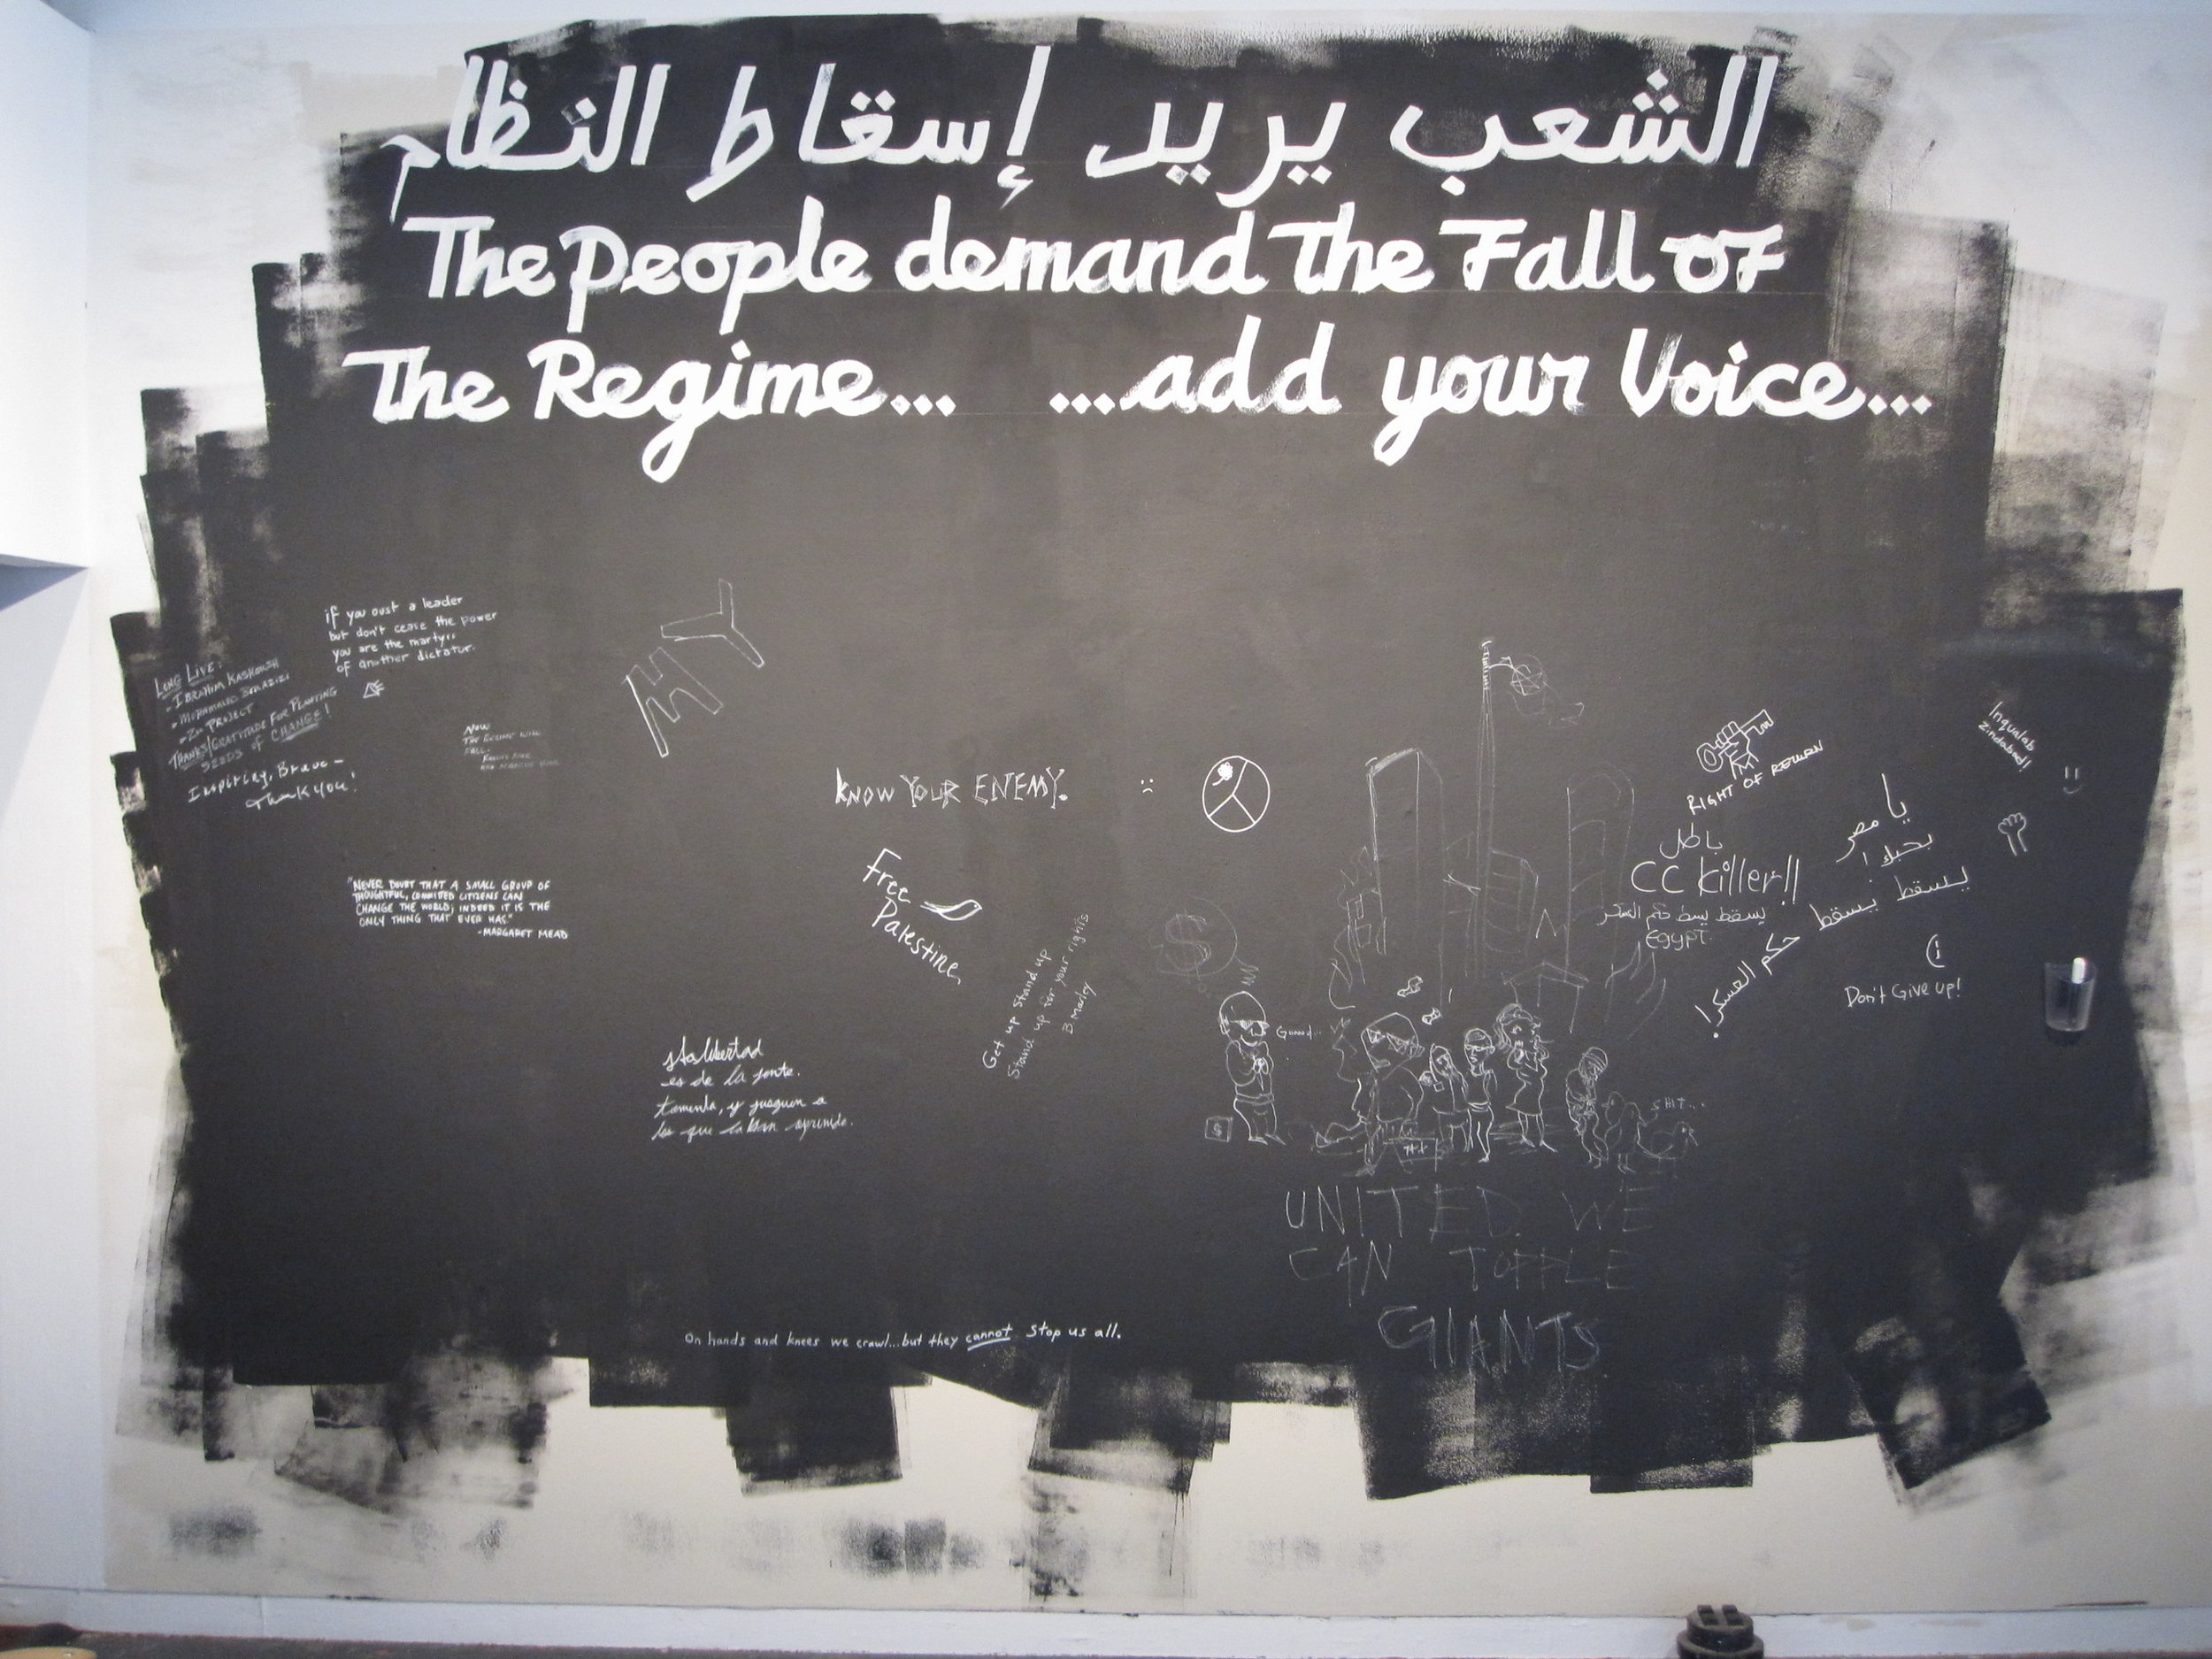 الشعب يريد إسقاط النظام
The people demand The Fall of
The Regime... ...add your Voice...
if you oust a leader
but don't cease the power
you are the martyrs
of another dictator.
LONG LIVE:
- IBRAHIM KASHOUSH
- MOHAMMAED BOUAZIZI
- PROJECT
THANKS/GRATITUDE FOR PLANTING
SEEDS of CHANGE!
Inspiring, Bravo -
Thank you!
NOW
THE REGIME WILL
FALL.
"NEVER DOUBT THAT A SMALL GROUP OF
THOUGHTFUL, COMMITED CITIZENS CAN
CHANGE THE WORLD; INDEED IT IS THE
ONLY THING THAT EVER HAS."
-MARGARET MEAD
KNOW YOUR ENEMY.
:(
Free
Palestine
Get up Stand up
Stand up for your rights
B. Marley
es de la gente.
y
los que
$
$
SHIT...
UNITED WE
CAN TOPPLE
GIANTS
On hands and knees we crawl...but they cannot stop us all.
RIGHT OF RETURN
باطل
CC Killer!!
يسقط يسقط حكم العسكر
Egypt.
Inqualab
Zindabad!
يا
مصر
بحبك!
يسقط يسقط حكم العسكر!
Don't Give up!